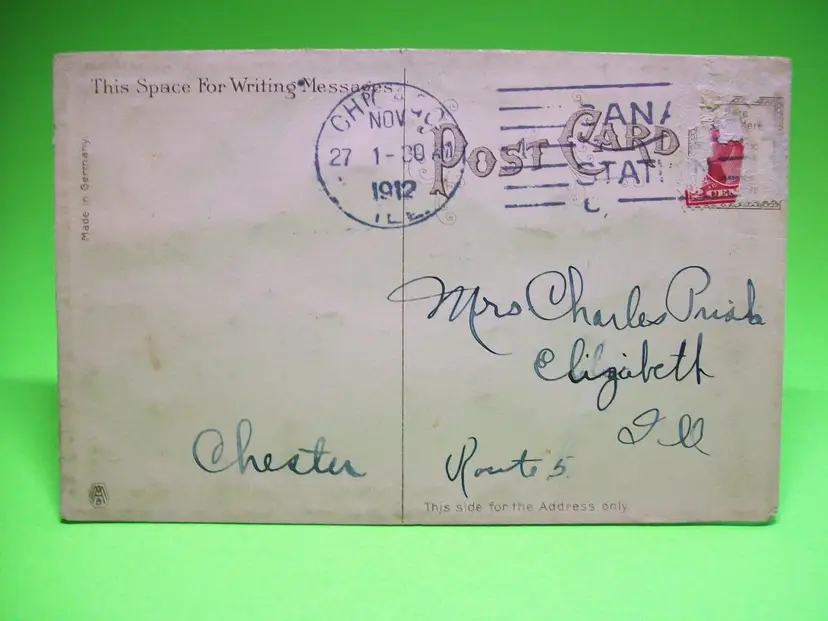 This Space For Writing Messages
Made in Germany.
NOV
27 1-30 AM
1912
ILL.
POST CARD
CANA
STATI
C,
Mrs Charles
Elizabeth
Ill
Chester
Route 5.
This side for the Address only.